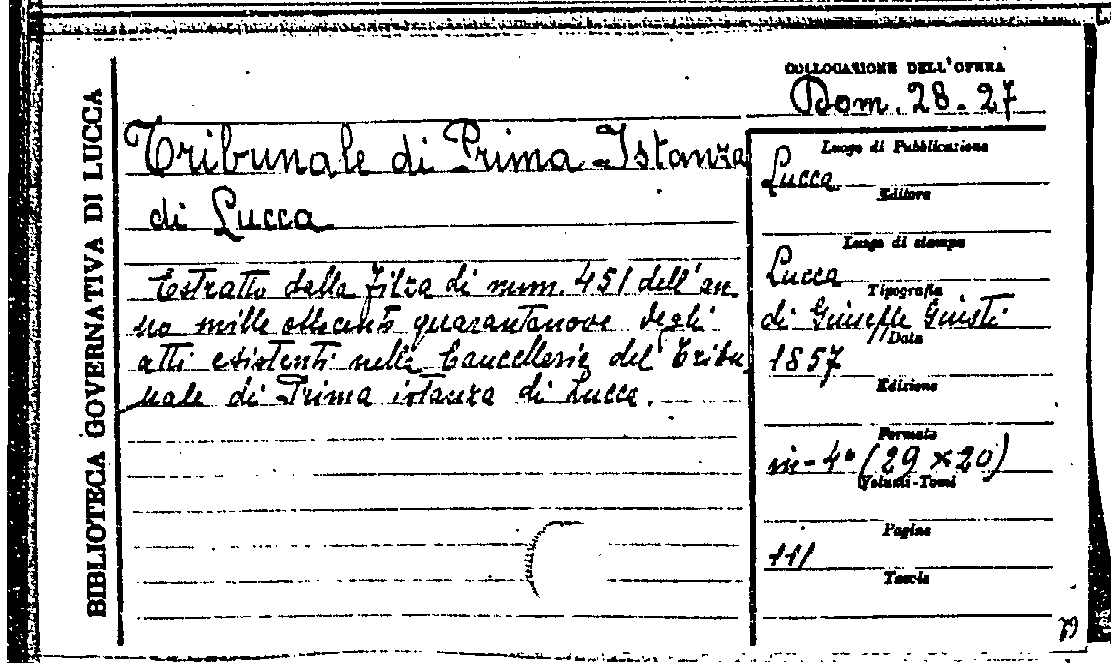 BIBLIOTECA GOVERNATIVA DI LUCCA
COLLOCAZIONE DELL'OPERA
Dom. 28-27
Tribunale di Prima Istanza
di Lucca
Estratto dalla Filza di num. 451 dell'an
no mille ottocento quarantanove degli
atti esistenti nella Cancelleria del Tribu
nale di Prima istanza di Lucca.
Luogo di Pubblicazione
Lucca
Editore
Luogo di stampa
Lucca
Tipografia
di Giuseppe Giusti
Data
1857
Edizione
Formato
in-4° (29×20)
Volumi-Tomi
Pagine
111
Tavole